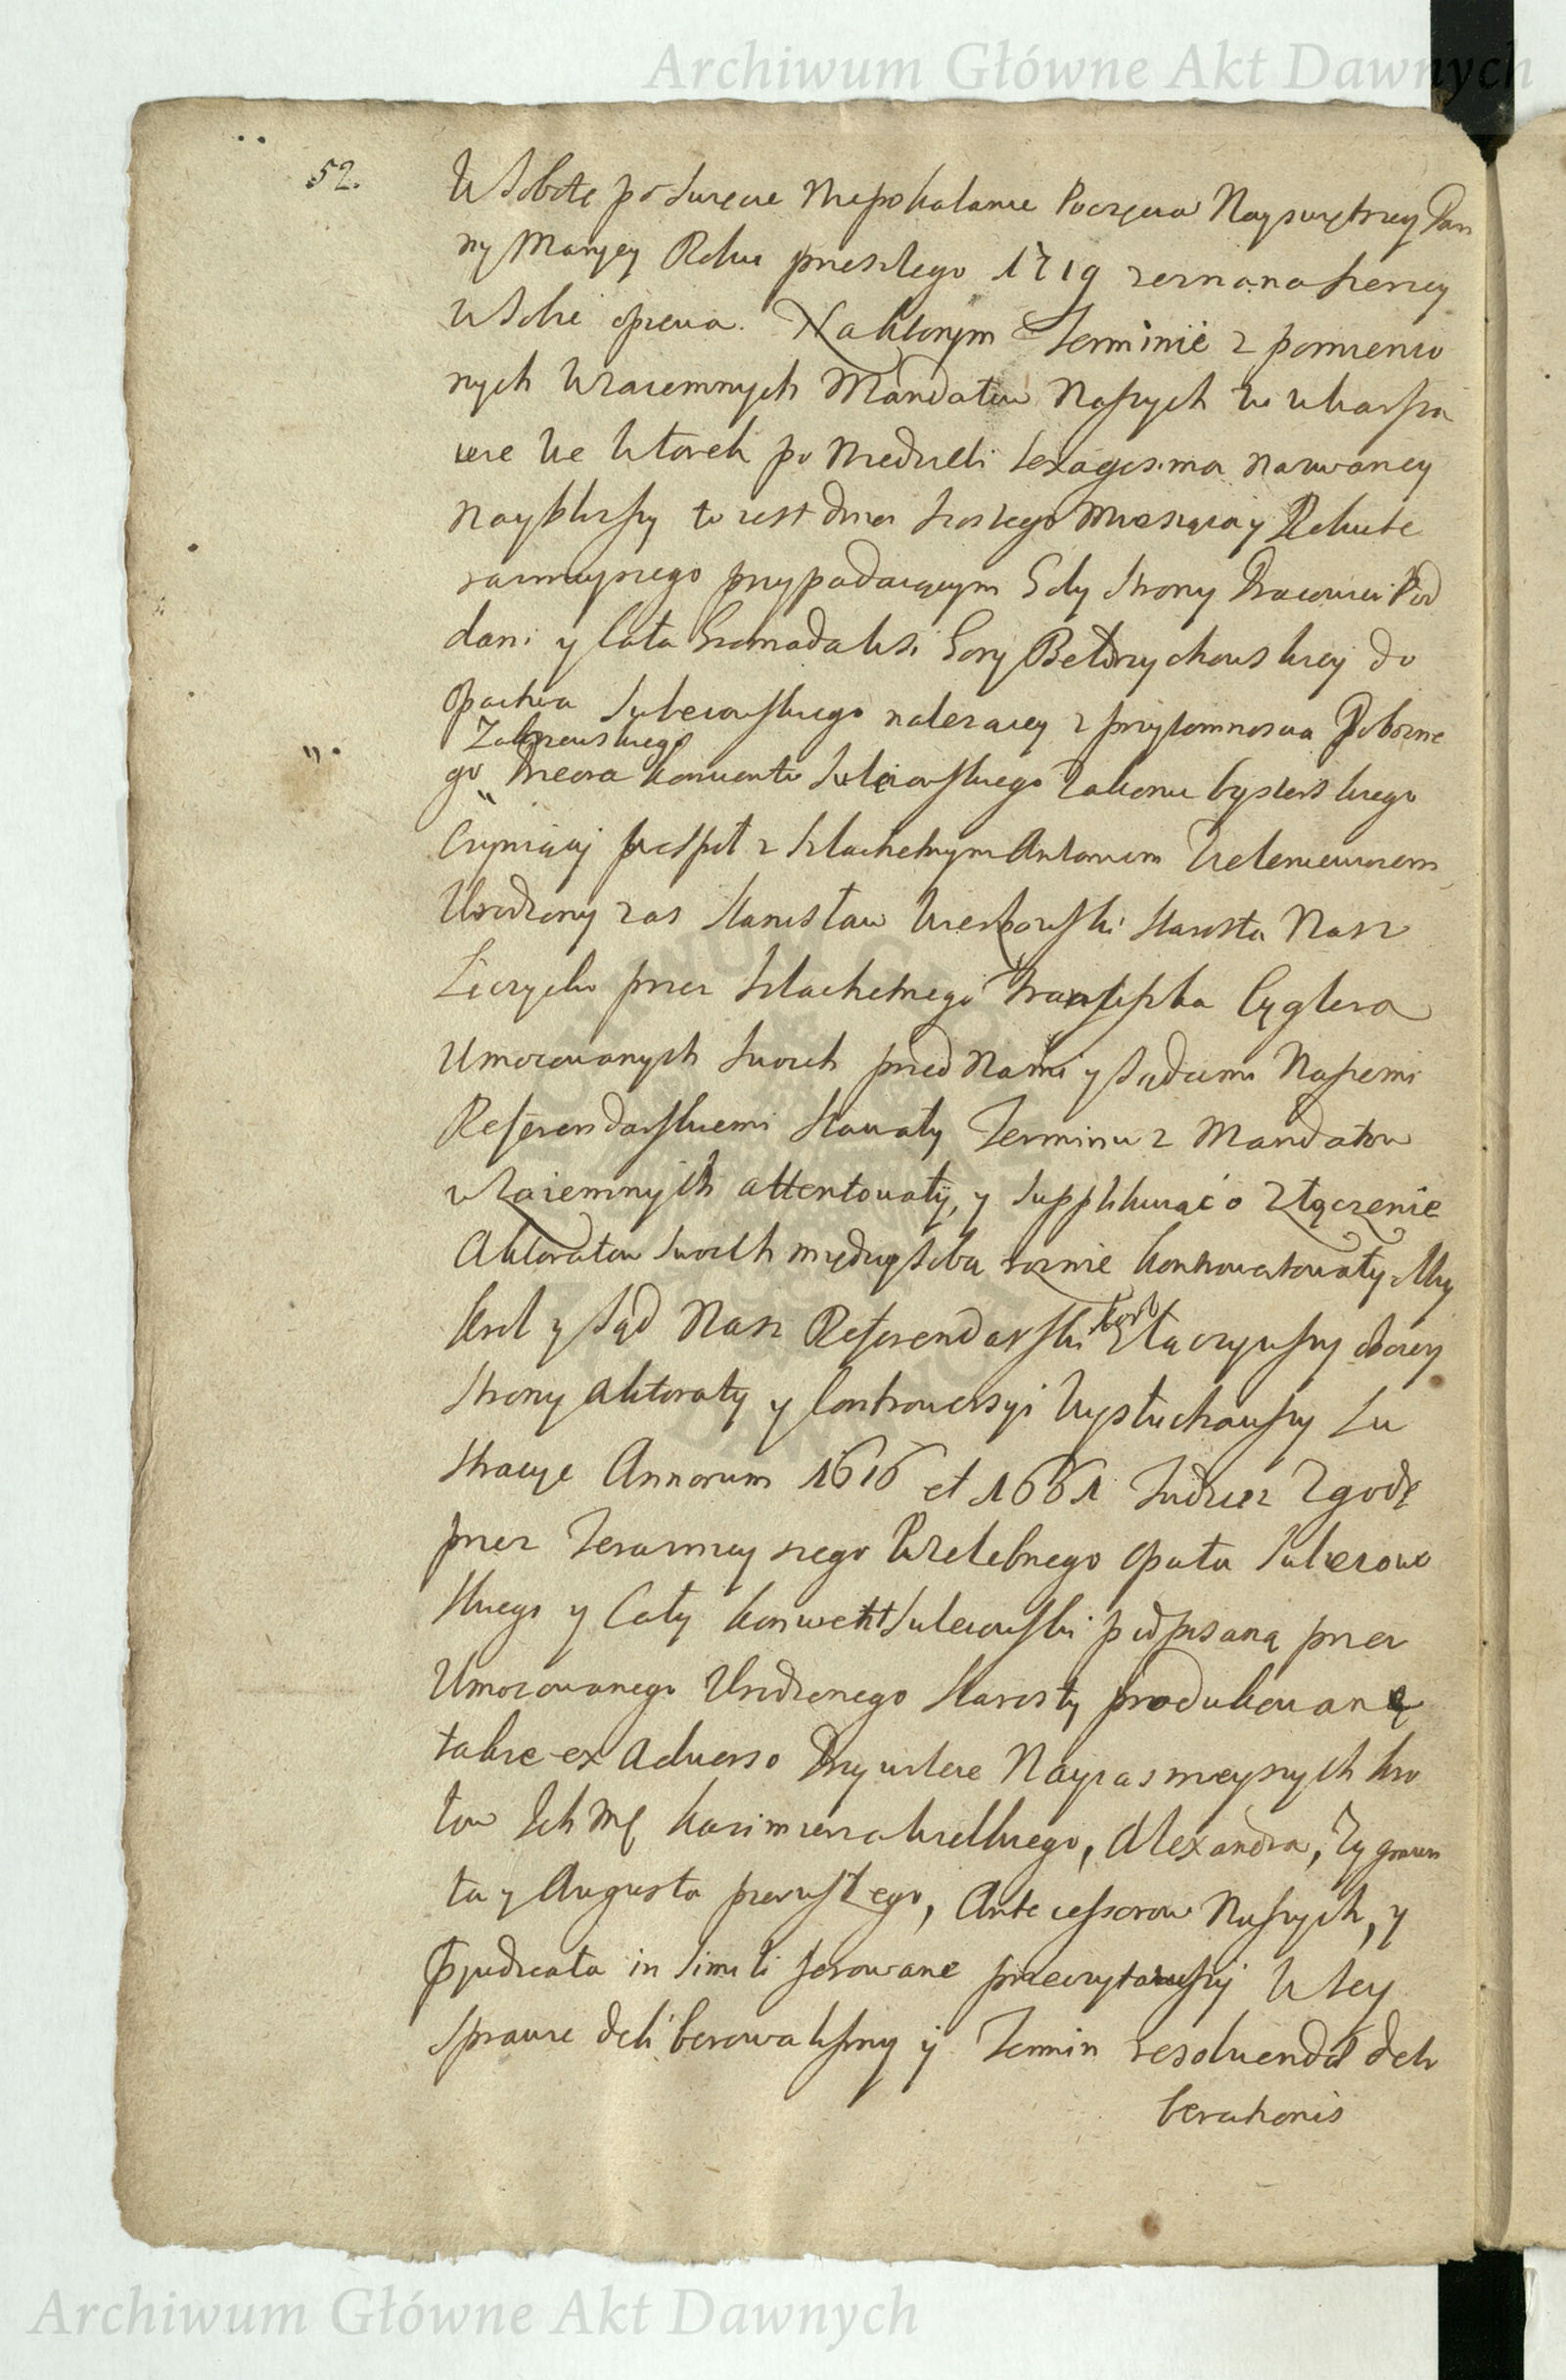 Archiwum Główne Akt Dawnych
52.
W Sobotę po Swięcie Niepokalanie Poczęcia Nayswiętszey Pan
ny Maryey Roku przeszlego 1719 zeznana szerzey
w sobie opiewa. Na ktorym Terminie z pomienio
nych wzaiemnych Mandatow Naszych w Warsza
wie we Wtorek po Niedzieli Sexagesima nazwaney
nayblizszy to iest dnia szostego Miesiąca y Roku te
raznieyszego przypadaiącym Gdy Strony Pracowici Pod
dani y Cała Gromada Wsi Gory Bełdrzychowskiey do
Opactwa Suleiowskiego nalezącey z przytomnoscia Poboznego
Zakrzewskiego
go Przeora Konwentu Suleiowskiego Zakonu Cysterskiego
Czyniący pospoł z Szlachetnym Antonim
Urodzony zas Stanisław Starosta Nasz
Łęczycki przez Szlachetnego Franciszka Cyglera
Umocowanych Swoich przed Nami y Sądami Naszemi
Referendarskiemi Stawały Terminu z Mandatow
wzaiemnych attentowały, y Supplikuiąc o Złączenie
Aktoratow Swoich między Sobą roznie kontrowertowały. My
Krol y Sąd Nasz Referendarski Złączywszy oboiey
Strony Aktoraty y Controwersyi Wysłuchawszy Lu
stracye Annorum 1616 et 1661 Tudziez Zgodę
przez Teraznieyszego Wielebnego Opata Suleiow
skiego y Cały Konwent Suleiowski podpisaną przez
Umocowanego Urodzonego Starosty produkowaną
takze ex adverso Przywileie Nayiasnieyszych Kro
low Ich Mę Kazimierza Wielkiego, Alexandra, Zygmun
ta y Augusta pierwszego, Antecessorow Naszych, y
Prejudicata in Simili ferowane przeczytawszy W tey
Sprawie deliberowalismy y Termin resolvenda deli
berationis
Archiwum Główne Akt Dawnych